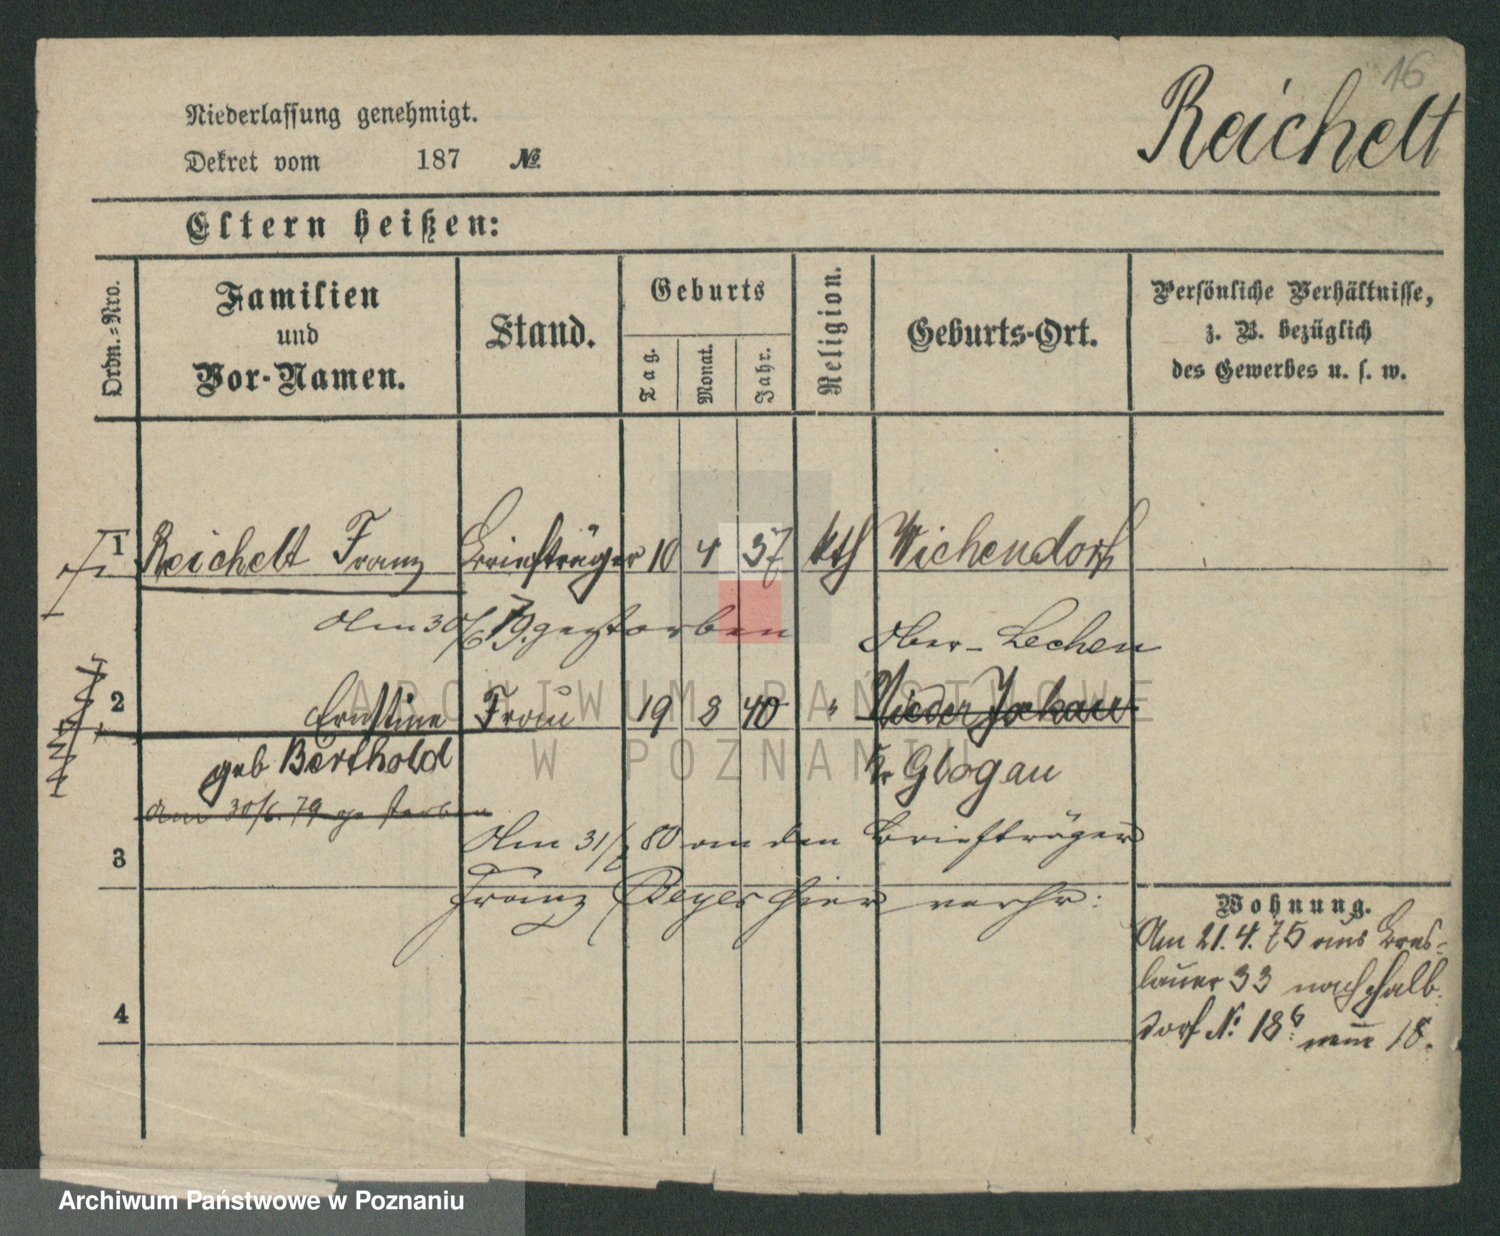 16
Reichelt
Niederlassung genehmigt.
Dekret vom 187 №
Eltern heißen:
Ordn.-Nro.
Familien
und
Vor-Namen.
Stand.
Geburts
Tag.
Monat.
Jahr.
Religion.
Geburts-Ort.
Persönliche Verhältnisse,
z. B. bezüglich
des Gewerbes u. s. w.
1 Reichelt Franz Briefträger 10 4 37 kth Wichendorf
Am 30/6 79. gestorben
Ober-Lechen
2 Ernstine Frau 19 8 40 " Nieder
geb Berthold
Kr Glogau
am 30/6. 79 gestorben
Am 31/ 80 an den Briefträger
3
Franz Beyer hier verhr:
Wohnung.
Am 21. 4. 75 aus Bres-
lauer 33 nach Halb-
dorf N: 18 6 neue 18.
4
ARCHIWUM PAŃSTWOWE
W POZNANIU
Archiwum Państwowe w Poznaniu